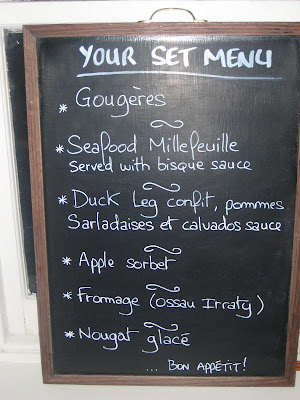 YOUR SET MENU
* Gougères
* Seafood Millefeuille
Served with bisque sauce
* Duck Leg confit, pommes
Sarladaises et calvados sauce
* Apple sorbet
* Fromage (Ossau Irraty)
* Nougat glacé
... BON APPÉTIT!